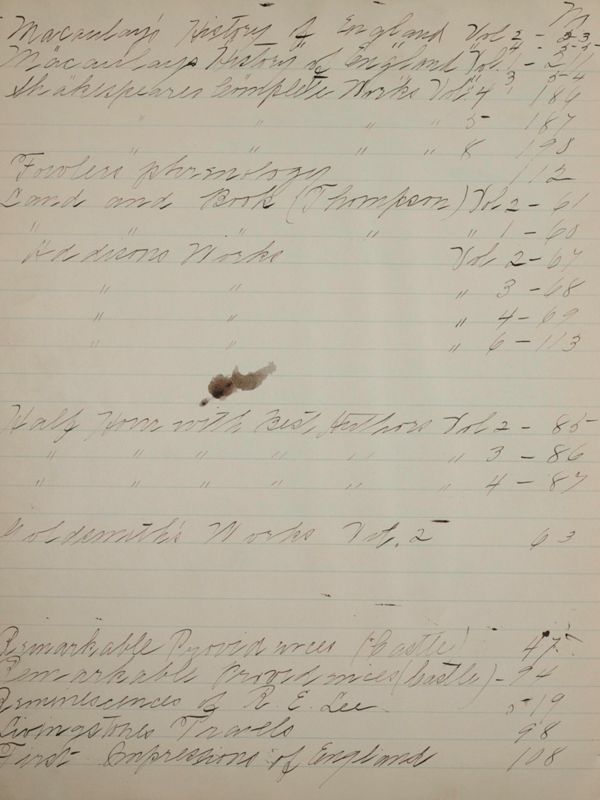 Macaulay's History of England Vol 2 - 53
Macaulay's History of England Vol. 1 - 211
Shakespeares Complete Works Vol. 4 186
" " " " 5 187
" " " " 8 198
Fowlers phrenology 112
Land and Book (Thompson) Vol 2 - 61
" " " " 1 - 60
Addisons Works Vol 2 - 67
" " " 3 - 68
" " " 4 - 69
" " " 6 - 113
Half Hour with Best Authors Vol 2 - 85
" " " " " " " 3 - 86
" " " " " " " 4 - 87
Goldsmith's Works Vol. 2 63
Remarkable Providences (Castle) 47
Remarkable Providences (Castle) - 94
Reminescences of R. E. Lee 519
Livingstones Travels 98
First Impressions of England 108